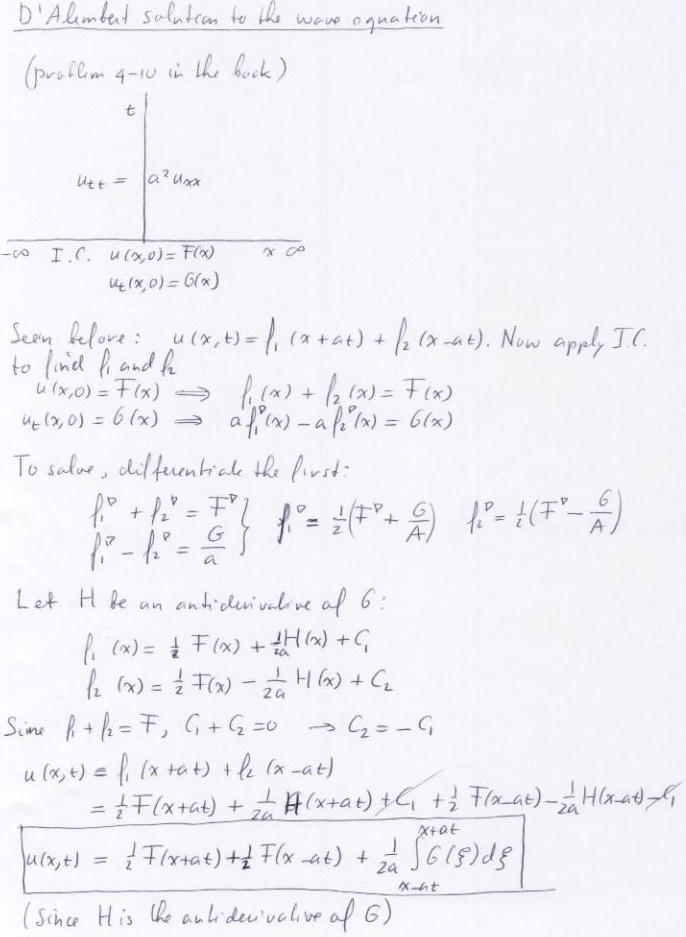 D'Alembert solution to the wave equation
(problem 4-10 in the book)
t
u_tt = a² u_xx
-∞ I.C. u(x,0) = F(x) x ∞
u_t(x,0) = G(x)
Seen before: u(x,t) = f₁(x+at) + f₂(x-at). Now apply I.C.
to find f₁ and f₂
u(x,0) = F(x) ⟹ f₁(x) + f₂(x) = F(x)
u_t(x,0) = G(x) ⟹ a f₁'(x) - a f₂'(x) = G(x)
To solve, differentiate the first:
f₁' + f₂' = F' } f₁' = ½(F' + G/A) f₂' = ½(F' - G/A)
f₁' - f₂' = G/a
Let H be an antiderivative of G:
f₁(x) = ½ F(x) + 1/2a H(x) + C₁
f₂(x) = ½ F(x) - 1/2a H(x) + C₂
Since f₁ + f₂ = F, C₁ + C₂ = 0 → C₂ = -C₁
u(x,t) = f₁(x+at) + f₂(x-at)
= ½ F(x+at) + 1/2a H(x+at) + C₁ + ½ F(x-at) - 1/2a H(x-at) - C₁
u(x,t) = ½ F(x+at) + ½ F(x-at) + 1/2a ∫_{x-at}^{x+at} G(ξ) dξ
(Since H is the antiderivative of G)